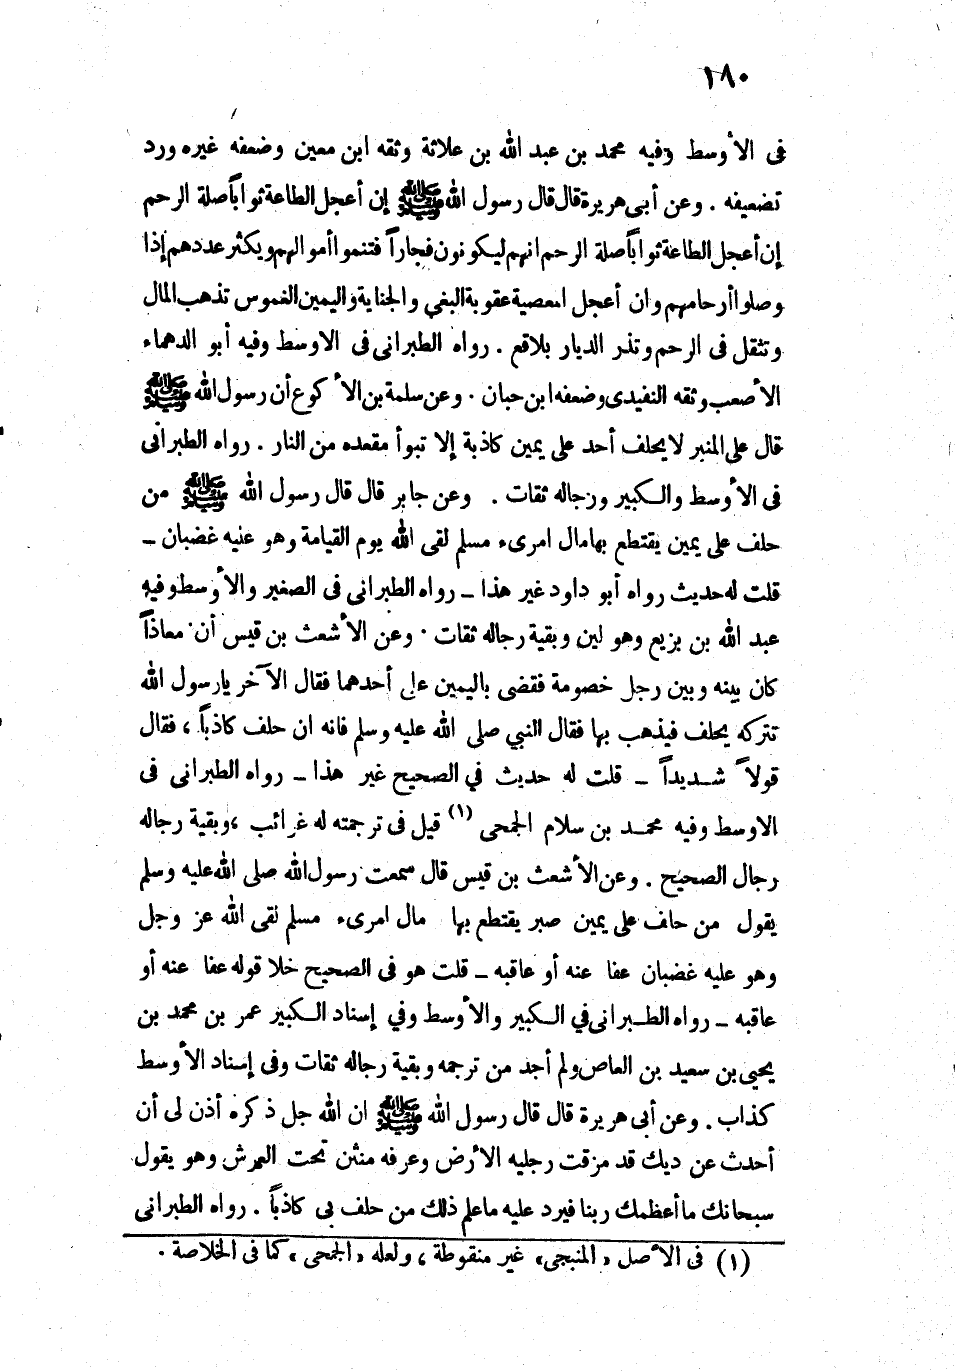 ١٨٠
فى الأوسط وفيه محمد بن عبد الله بن علاثة وثقه ابن معين وضعفه غيره ورد
تضعيفه . وعن أبى هريرة قال قال رسول الله ﷺ إن أعجل الطاعة ثواباً صلة الرحم
إن أعجل الطاعة ثواباً صلة الرحم انهم ليكونون فجاراً فتنموا أموالهم ويكثر عددهم إذا
وصلوا أرحامهم وان أعجل المعصية عقوبة البغي والجناية واليمين الغموس تذهب المال
وتثقل فى الرحم وتذر الديار بلاقع . رواه الطبرانى فى الاوسط وفيه أبو الدهماء
الأصعب وثقه النفيدى وضعفه ابن حبان . وعن سلمة بن الأكوع أن رسول الله ﷺ
قال على المنبر لا يحلف أحد على يمين كاذبة إلا تبوأ مقعده من النار . رواه الطبرانى
فى الأوسط والكبير ورجاله ثقات . وعن جابر قال قال رسول الله ﷺ من
حلف على يمين يقتطع بها مال امرىء مسلم لقى الله يوم القيامة وهو عليه غضبان ــ
قلت له حديث رواه أبو داود غير هذا ــ رواه الطبرانى فى الصغير والأوسط وفيه
عبد الله بن بزيع وهو لين وبقية رجاله ثقات . وعن الأشعث بن قيس أن معاذاً
كان بينه وبين رجل خصومة فقضى باليمين على أحدهما فقال الآخر يارسول الله
تتركه يحلف فيذهب بها فقال النبي صلى الله عليه وسلم فانه ان حلف كاذباً ، فقال
قولاً شديداً ــ قلت له حديث في الصحيح غير هذا ــ رواه الطبرانى فى
الاوسط وفيه محمد بن سلام الجمحى (١) قيل فى ترجمته له غرائب ، وبقية رجاله
رجال الصحيح . وعن الأشعث بن قيس قال سمعت رسول الله صلى الله عليه وسلم
يقول من حلف على يمين صبر يقتطع بها مال امرىء مسلم لقى الله عز وجل
وهو عليه غضبان عفا عنه أو عاقبه ــ قلت هو فى الصحيح خلا قوله عفا عنه أو
عاقبه ــ رواه الطبرانى في الكبير والأوسط وفي إسناد الكبير عمر بن محمد بن
يحيى بن سعيد بن العاص ولم أجد من ترجمه وبقية رجاله ثقات وفى إسناد الأوسط
كذاب . وعن أبى هريرة قال قال رسول الله ﷺ ان الله جل ذكره أذن لى أن
أحدث عن ديك قد مزقت رجليه الأرض وعرفه منثن تحت العرش وهو يقول
سبحانك ما أعظمك ربنا فيرد عليه ماعلم ذلك من حلف بى كاذباً . رواه الطبرانى
(١) فى الأصل « المنبجى » غير منقوطة ، ولعله « الجمحى » كما فى الخلاصة .